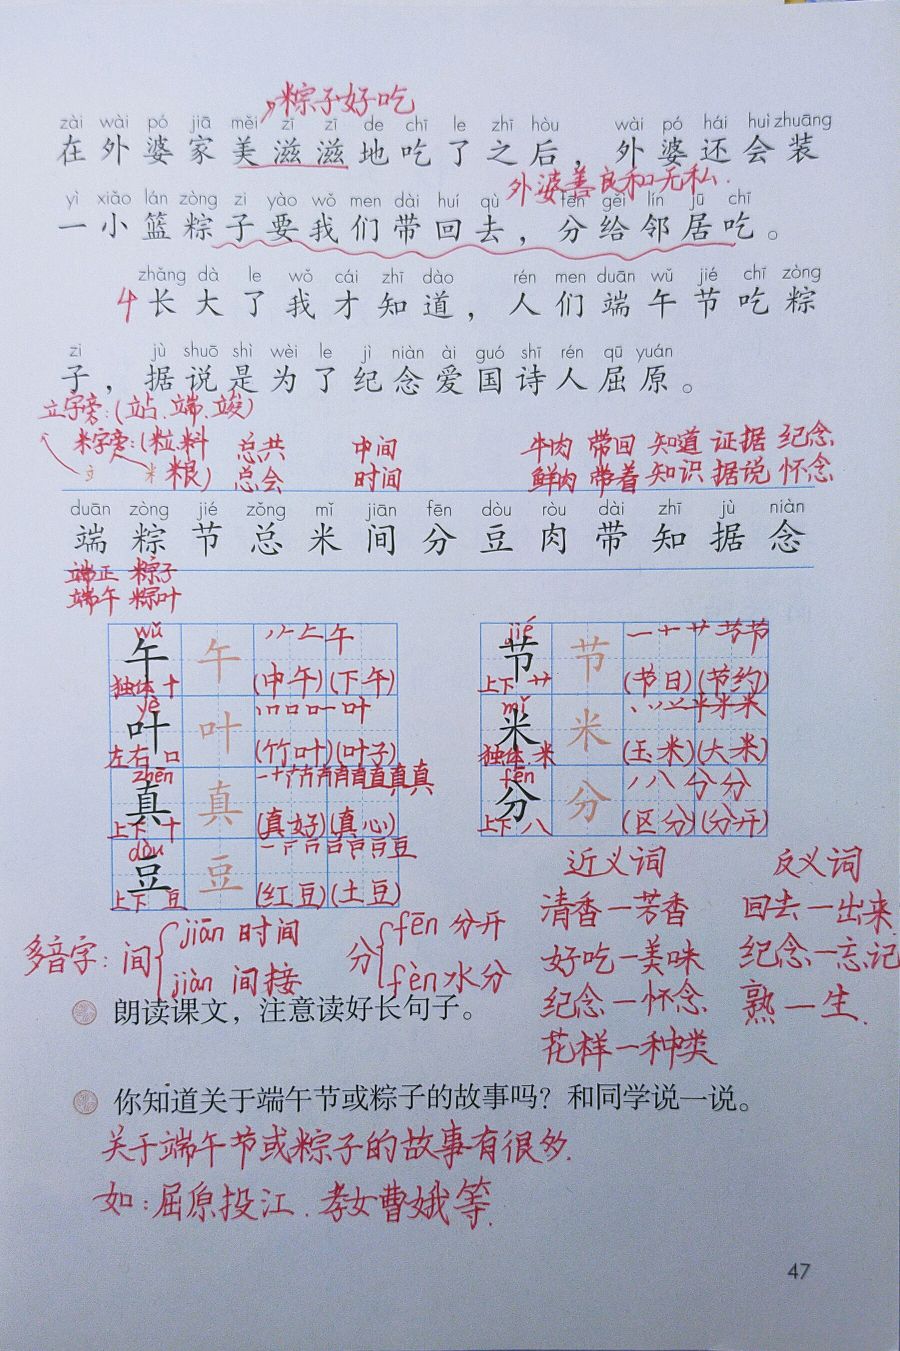 粽子好吃
zài wài pó jiā měi zī zī de chī le zhī hòu wài pó hái huì zhuāng
在外婆家美滋滋地吃了之后，外婆还会装
外婆善良和无私.
yì xiǎo lán zòng zi yào wǒ men dài huí qù fēn gěi lín jū chī
一小篮粽子要我们带回去，分给邻居吃。
zhǎng dà le wǒ cái zhī dào rén men duān wǔ jié chī zòng
4 长大了我才知道，人们端午节吃粽
zi jù shuō shì wèi le jì niàn ài guó shī rén qū yuán
子，据说是为了纪念爱国诗人屈原。
立字旁:(站、端、竣)
米字旁:(粒、料 总共 中间 牛肉 带回 知道 证据 纪念
粮) 总会 时间 鲜肉 带着 知识 据说 怀念
duān zòng jié zǒng mǐ jiān fēn dòu ròu dài zhī jù niàn
端 粽 节 总 米 间 分 豆 肉 带 知 据 念
端正 粽子
端午 粽叶
wǔ jié
午 午 丿 𠂉 午 节 节 一 十 艹 节 节
独体 十 (中午)(下午) 上下 艹 (节日)(节约)
yè mǐ
叶 叶 米 米
左右 口 (竹叶)(叶子) 独体 米 (玉米)(大米)
zhēn fēn
真 真 分 分
上下 十 (真好)(真心) 上下 八 (区分)(分开)
dòu
豆 豆
上下 豆 (红豆)(土豆)
近义词 反义词
清香—芳香 回去—出来
好吃—美味 纪念—忘记
纪念—怀念 熟—生.
花样—种类
多音字: 间 jiān 时间 分 fēn 分开
jiàn 间接 fèn 水分
朗读课文，注意读好长句子。
你知道关于端午节或粽子的故事吗？和同学说一说。
关于端午节或粽子的故事有很多.
如:屈原投江、孝女曹娥等.
47